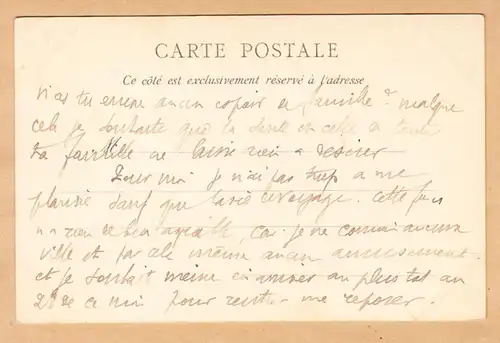 CARTE POSTALE
Ce côté est exclusivement réservé à l'adresse
tu encore aucun copain de famille ? malgré
cela je souhaite que ta santé et celle de toute
ta famille ne laisse rien a desirer
Pour moi je n'ai pas trop a me
plaindre sauf que ce voyage. cette fois
n'a rien de bien agréable, car je ne connais aucune
ville et par cela même aucun amusement
et je souhait meme arriver au plus tot au
28 de ce mois pour rentrer me reposer.